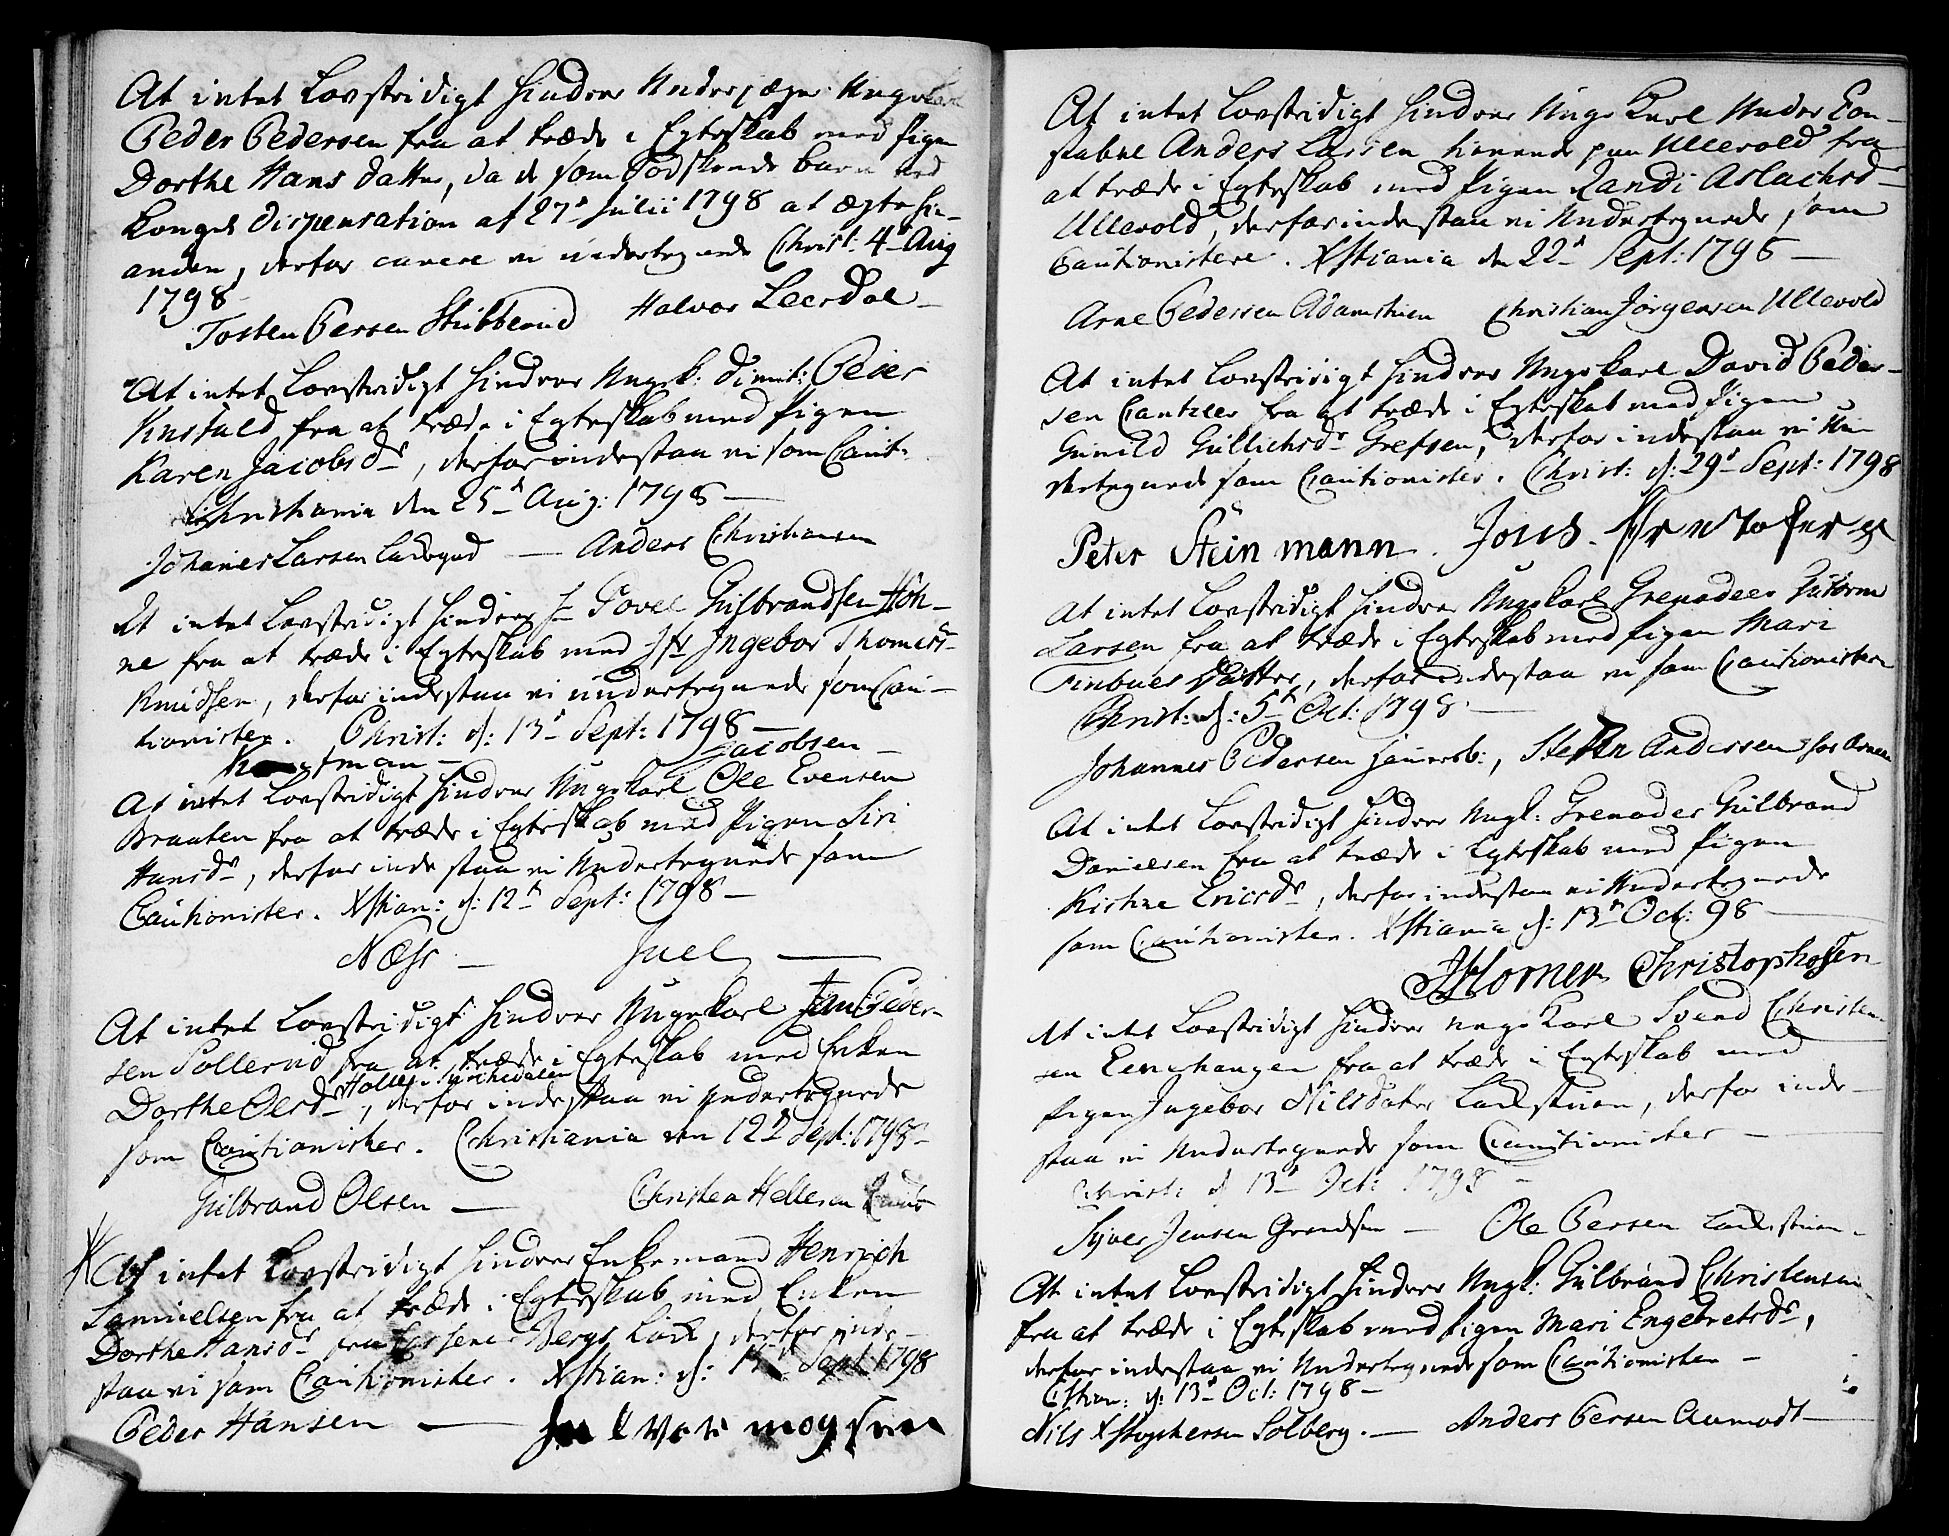 At intet Lovstridigt hindrer Underjæger Ungekarl
Peder Pedersen fra at træde i Egteskab med Pigen
Dorthe Hans datter, da de som Sødskende barn ved
Konget dispensation af 27d Julii 1798 at ægte hin-
anden, derfor cavere vi undertegnede Christ: 4d Aug
1798
Tosten Persen Stubberud Halvor Leerdal -
At intet Lovstridigt hindrer Ungek: dimit: Peder
fra at træde i Egteskab med Pigen
Karen Jacobsdr, derfor indestaa vi som Caut:
Christiania den 25d Aug: 1798 -
Johanes Larsen Ladegrd - Anders Christiansen
At intet Lovstridigt hindrer Hr Povel Gulbrandsen Høh-
ne fra at træde i Egteskab med Jfr Ingebor Thomest:
Knudsen, derfor indestaa vi undertegnede som Cau-
tionister. Christ: d: 13d Sept: 1798 -
Jacobsen -
At intet Lovstridigt hindrer Ungekarl Ole Evensen
Braaten fra at træde i Egteskab med Pigen Siri
Hansdr, derfor indestaa vi Undertegnede som
Cautionister. Xstian: d: 12d Sept: 1798 -
Næss - Juel -
At intet Lovstridigt hindrer Ungekarl Jens Peder-
sen Sollerud fra at træde i Egteskab med Enken
Holter i Sørchedalen
Dorthe Olsdr, derfor indestaa vi undertegnede
som Cautionister. Christiania den 12d Sept: 1798 -
Gulbrand Olsen - Christen Hellesen
At intet Lovstridigt hindrer Enkemand Henrich
Samuelsen fra at træde i Egteskab med Enken
Dorthe Hansdr fra Bergs Løch, derfor inde-
staa vi som Cautionister. Xstian: d: Sept 1798
Peder Hansen - Halvor mogsen
At intet Lovstridigt hindrer Ungekarl Under Con-
stabel Anders Larsen tienende paa Ullevold fra
at træde i Egteskab med Pigen Randi Aslachsd-
Ullevold, derfor indestaa vi Undertegnede som
Cautionistere. Xstiania den 22d Sept: 1798 -
Arne Pedersen Adamstuen Christian Jørgensen Ullevold
At intet Lovstridigt hindrer Ungekarl David Peder-
sen Cantzler fra at træde i Egteskab med Pigen
Gunild Gullichsdr Grefsen, derfor indestaa vi Un-
dertegnede som Cautionister. Christ: d: 29d Sept: 1798
Peter Steinmann. Jens
At intet Lovstridigt hindrer Ungekarl Grenadeer Guttorm
Larsen fra at træde i Egteskab med Pigen Mari
Finboes datter, derfor indestaa vi som Cautionister
Christ: d: 5d Oct: 1798 -
Johannes Pedersen, Steffen Andersen
At intet Lovstridigt hindrer Ungk: Grenader Gulbrand
Danielsen fra at træde i Egteskab med Pigen
Kistine Ericsdr, derfor indestaa vi Undertegnede
som Cautionister. Xstiania d: 13d Oct: 98 -
JHorner Christophersen
At intet Lovstridigt hindrer Unge Karl Svend Christen-
sen Eenehaugen fra at træde i Egteskab med
Pigen Ingebor Nilsdater Løchstuen, derfor inde-
staa vi Undertegnede som Cautionister -
Christ: d 13d Oct: 1798 -
Syver Jensen - Ole Persen Løchstuen.
At intet Lovstridigt hindrer Ungk: Gulbrand Christensen
fra at træde i Egteskab med Pigen Mari Engebretsdr,
derfor indestaa vi Undertegnede som Cautionister -
Cstian: d: 13d Oct: 1798 -
Nils Xstophersen Solberg. - Anders Persen Aamodt -